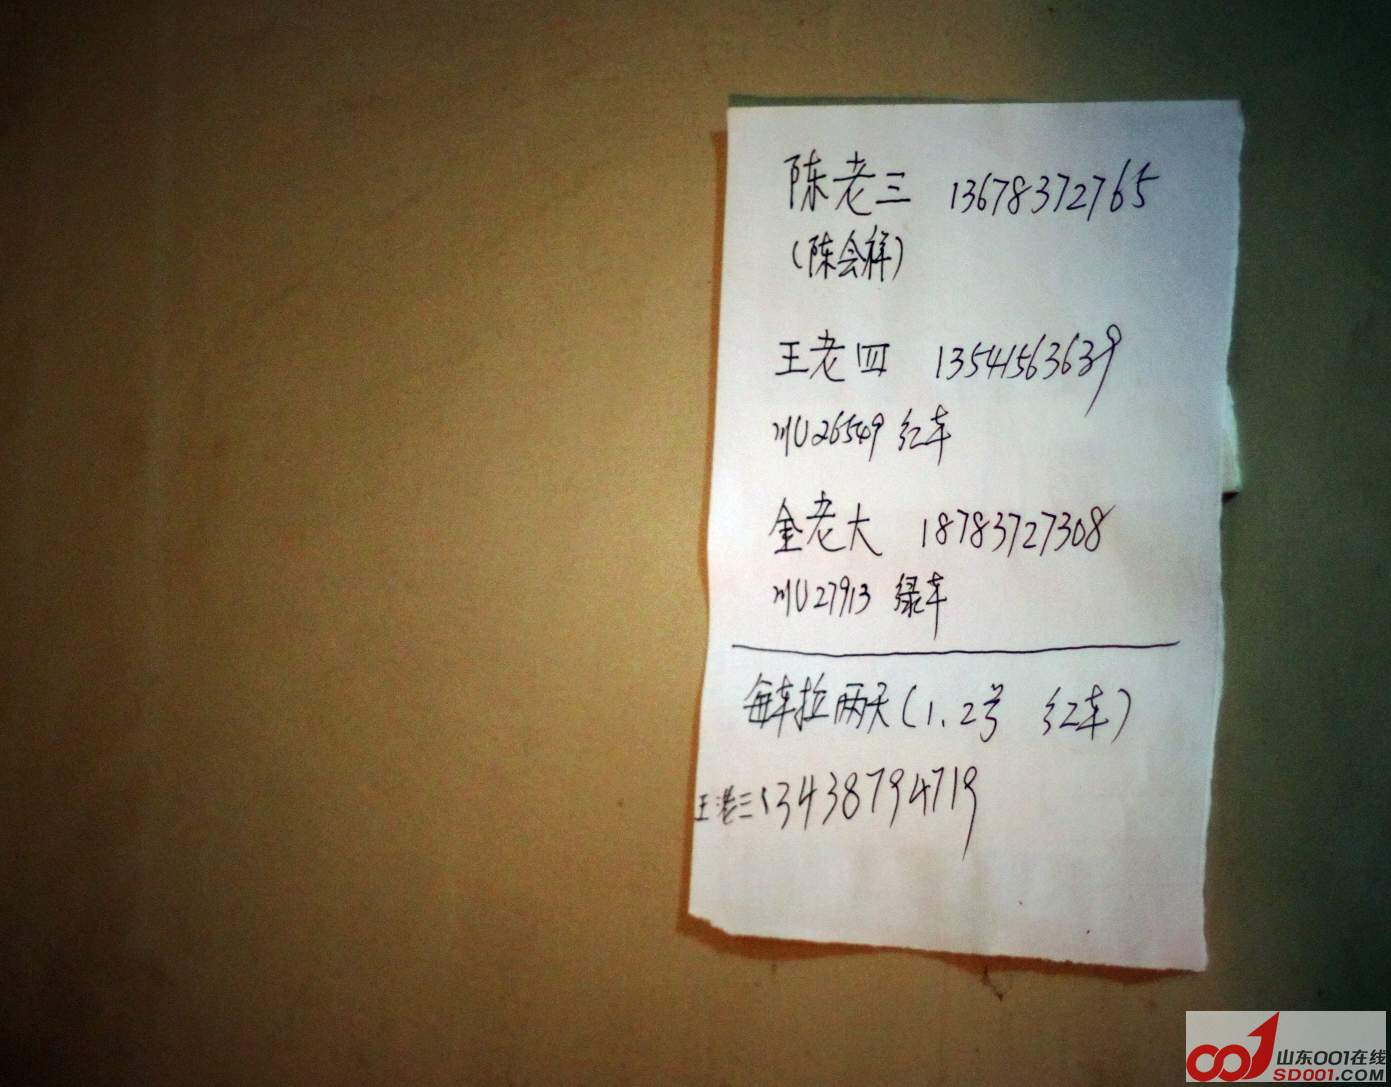 陈老三 13678372765
(陈会祥)
王老四 13541563639
川U26549 红车
金老大 18783727308
川U27913 绿车
每车拉两天(1、2号 红车)
王老三 13438794719
山东001在线
SD001.COM